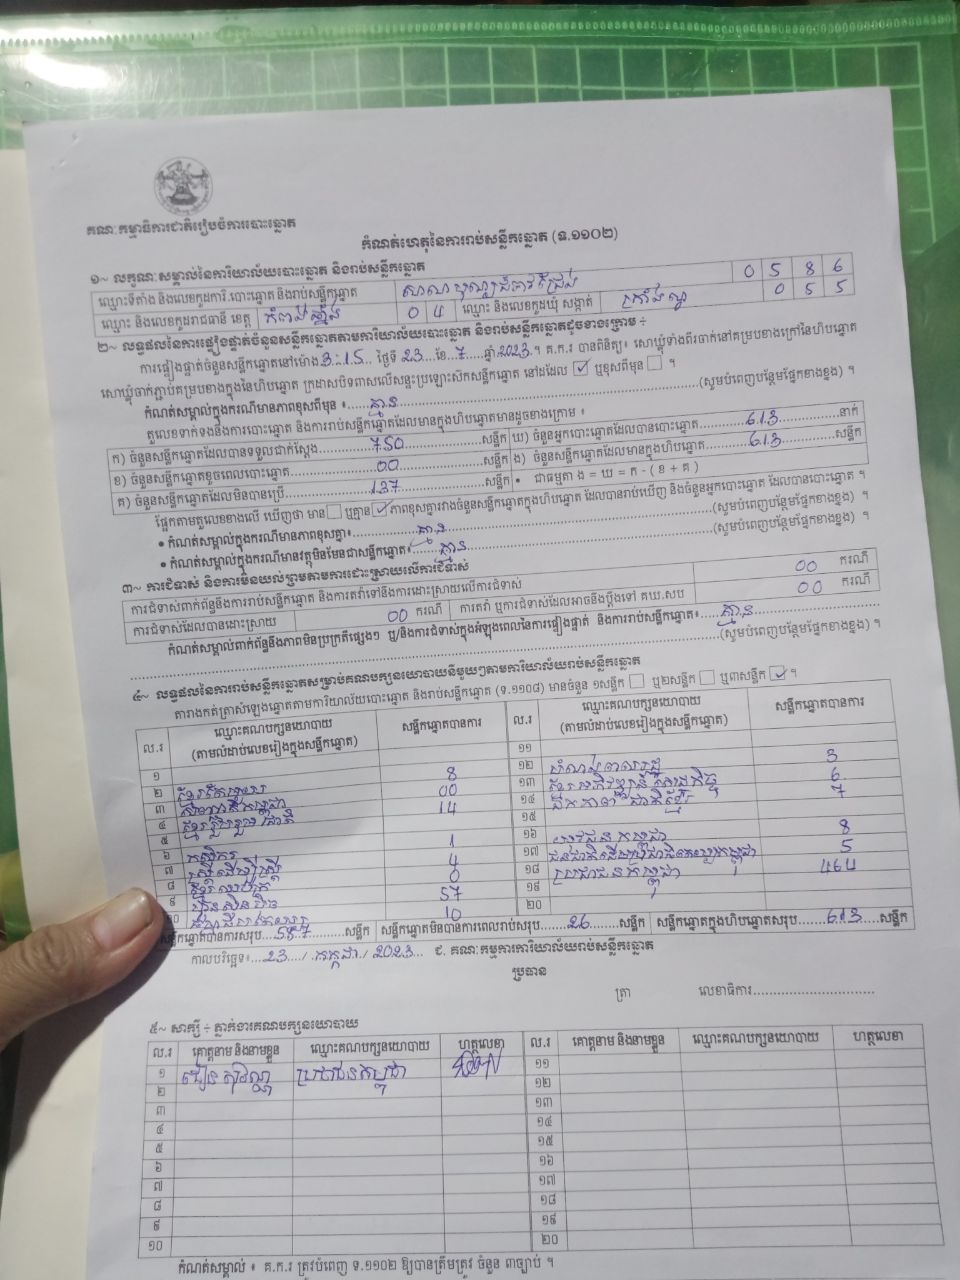 គណៈកម្មាធិការជាតិរៀបចំការបោះឆ្នោត
កំណត់ហេតុនៃការរាប់សន្លឹកឆ្នោត (ទ.១១០២)
១~ លក្ខណៈសម្គាល់នៃការិយាល័យបោះឆ្នោត និងរាប់សន្លឹកឆ្នោត
ឈ្មោះទីតាំង និងលេខកូដការិ.បោះឆ្នោត និងរាប់សន្លឹកឆ្នោត 0 5 8 6
ឈ្មោះ និងលេខកូដរាជធានី ខេត្ត កំពង់ឆ្នាំង 0 4 ឈ្មោះ និងលេខកូដឃុំ សង្កាត់ 0 5 5
២~ លទ្ធផលនៃការផ្ទៀងផ្ទាត់ចំនួនសន្លឹកឆ្នោតតាមការិយាល័យបោះឆ្នោត និងរាប់សន្លឹកឆ្នោតដូចខាងក្រោម ÷
ការផ្ទៀងផ្ទាត់ចំនួនសន្លឹកឆ្នោតនៅម៉ោង 3:15 ថ្ងៃទី 23 ខែ 7 ឆ្នាំ 2023 ។ គ.ក.រ បានពិនិត្យ៖ សោឃ្លុំទាំងពីរចាក់នៅគម្របខាងក្រៅនៃហិបឆ្នោត
សោឃ្លុំចាក់ភ្ជាប់គម្របខាងក្នុងនៃហិបឆ្នោត ក្រដាសបិទពាសលើសន្ទះប្រឡោះសិកសន្លឹកឆ្នោត នៅដដែល ✓ ឬខុសពីមុន ។
កំណត់សម្គាល់ក្នុងករណីមានភាពខុសពីមុន ៖ គ្មាន (សូមបំពេញបន្ថែមផ្នែកខាងខ្នង) ។
តួលេខទាក់ទងនឹងការបោះឆ្នោត និងការរាប់សន្លឹកឆ្នោតដែលមានក្នុងហិបឆ្នោតមានដូចខាងក្រោម ៖
ក) ចំនួនសន្លឹកឆ្នោតដែលបានទទួលជាក់ស្តែង 750 សន្លឹក ឃ) ចំនួនអ្នកបោះឆ្នោតដែលបានបោះឆ្នោត 613 នាក់
ខ) ចំនួនសន្លឹកឆ្នោតខូចពេលបោះឆ្នោត 00 សន្លឹក ង) ចំនួនសន្លឹកឆ្នោតដែលមានក្នុងហិបឆ្នោត 613 សន្លឹក
គ) ចំនួនសន្លឹកឆ្នោតដែលមិនបានប្រើ 137 សន្លឹក • ជាធម្មតា ង = ឃ = ក - ( ខ + គ )
ផ្អែកតាមតួលេខខាងលើ ឃើញថា មាន ឬគ្មាន ✓ ភាពខុសគ្នារវាងចំនួនសន្លឹកឆ្នោតក្នុងហិបឆ្នោត ដែលបានរាប់ឃើញ និងចំនួនអ្នកបោះឆ្នោត ដែលបានបោះឆ្នោត ។
• កំណត់សម្គាល់ក្នុងករណីមានភាពខុសគ្នា៖ គ្មាន (សូមបំពេញបន្ថែមផ្នែកខាងខ្នង) ។
• កំណត់សម្គាល់ក្នុងករណីមានវត្ថុមិនមែនជាសន្លឹកឆ្នោត៖ គ្មាន (សូមបំពេញបន្ថែមផ្នែកខាងខ្នង) ។
៣~ ការជំទាស់ និងការមិនយល់ព្រមតាមការដោះស្រាយលើការជំទាស់
ការជំទាស់ពាក់ព័ន្ធនឹងការរាប់សន្លឹកឆ្នោត និងការតវ៉ាទៅនឹងការដោះស្រាយលើការជំទាស់ 00 ករណី
ការជំទាស់ដែលបានដោះស្រាយ 00 ករណី ការតវ៉ា ឬការជំទាស់ដែលអាចនឹងប្តឹងទៅ គឃ.សប 00 ករណី
កំណត់សម្គាល់ពាក់ព័ន្ធនឹងភាពមិនប្រក្រតីផ្សេងៗ ឬ/និងការជំទាស់ក្នុងអំឡុងពេលនៃការផ្ទៀងផ្ទាត់ និងការរាប់សន្លឹកឆ្នោត៖ គ្មាន
(សូមបំពេញបន្ថែមផ្នែកខាងខ្នង) ។
៤~ លទ្ធផលនៃការរាប់សន្លឹកឆ្នោតសម្រាប់គណបក្សនយោបាយនីមួយៗតាមការិយាល័យរាប់សន្លឹកឆ្នោត
តារាងកត់ត្រាសំឡេងឆ្នោតតាមការិយាល័យបោះឆ្នោត និងរាប់សន្លឹកឆ្នោត (ទ.១១០៨) មានចំនួន ១សន្លឹក ឬ២សន្លឹក ឬ៣សន្លឹក ✓ ។
ល.រ ឈ្មោះគណបក្សនយោបាយ (តាមលំដាប់លេខរៀងក្នុងសន្លឹកឆ្នោត) សន្លឹកឆ្នោតបានការ ល.រ ឈ្មោះគណបក្សនយោបាយ (តាមលំដាប់លេខរៀងក្នុងសន្លឹកឆ្នោត) សន្លឹកឆ្នោតបានការ
១ 8 ១១
២ 00 ១២ សំបុកឃ្មុំ 3
៣ 14 ១៣ 6
៤ ១៤ 7
៥ 1 ១៥
៦ កសិករ 4 ១៦ យុវជនកម្ពុជា 8
៧ ស្រ្តីដើម្បីស្រ្តី 0 ១៧ 5
៨ ១៨ ប្រជាជនកម្ពុជា 464
៩ 57 ១៩
១០ 10 ២០
សន្លឹកឆ្នោតបានការសរុប 587 សន្លឹក សន្លឹកឆ្នោតមិនបានការពេលរាប់សរុប 26 សន្លឹក សន្លឹកឆ្នោតក្នុងហិបឆ្នោតសរុប 613 សន្លឹក
កាលបរិច្ឆេទ៖ 23 / កក្កដា / 2023 ជ. គណៈកម្មការការិយាល័យរាប់សន្លឹកឆ្នោត
ប្រធាន
ត្រា លេខាធិការ
៥~ សាក្សី ÷ ភ្នាក់ងារគណបក្សនយោបាយ
ល.រ គោត្តនាម និងនាមខ្លួន ឈ្មោះគណបក្សនយោបាយ ហត្ថលេខា ល.រ គោត្តនាម និងនាមខ្លួន ឈ្មោះគណបក្សនយោបាយ ហត្ថលេខា
១ ប្រជាជនកម្ពុជា ១១
២ ១២
៣ ១៣
៤ ១៤
៥ ១៥
៦ ១៦
៧ ១៧
៨ ១៨
៩ ១៩
១០ ២០
កំណត់សម្គាល់ ៖ គ.ក.រ ត្រូវបំពេញ ទ.១១០២ ឱ្យបានត្រឹមត្រូវ ចំនួន ៣ច្បាប់ ។